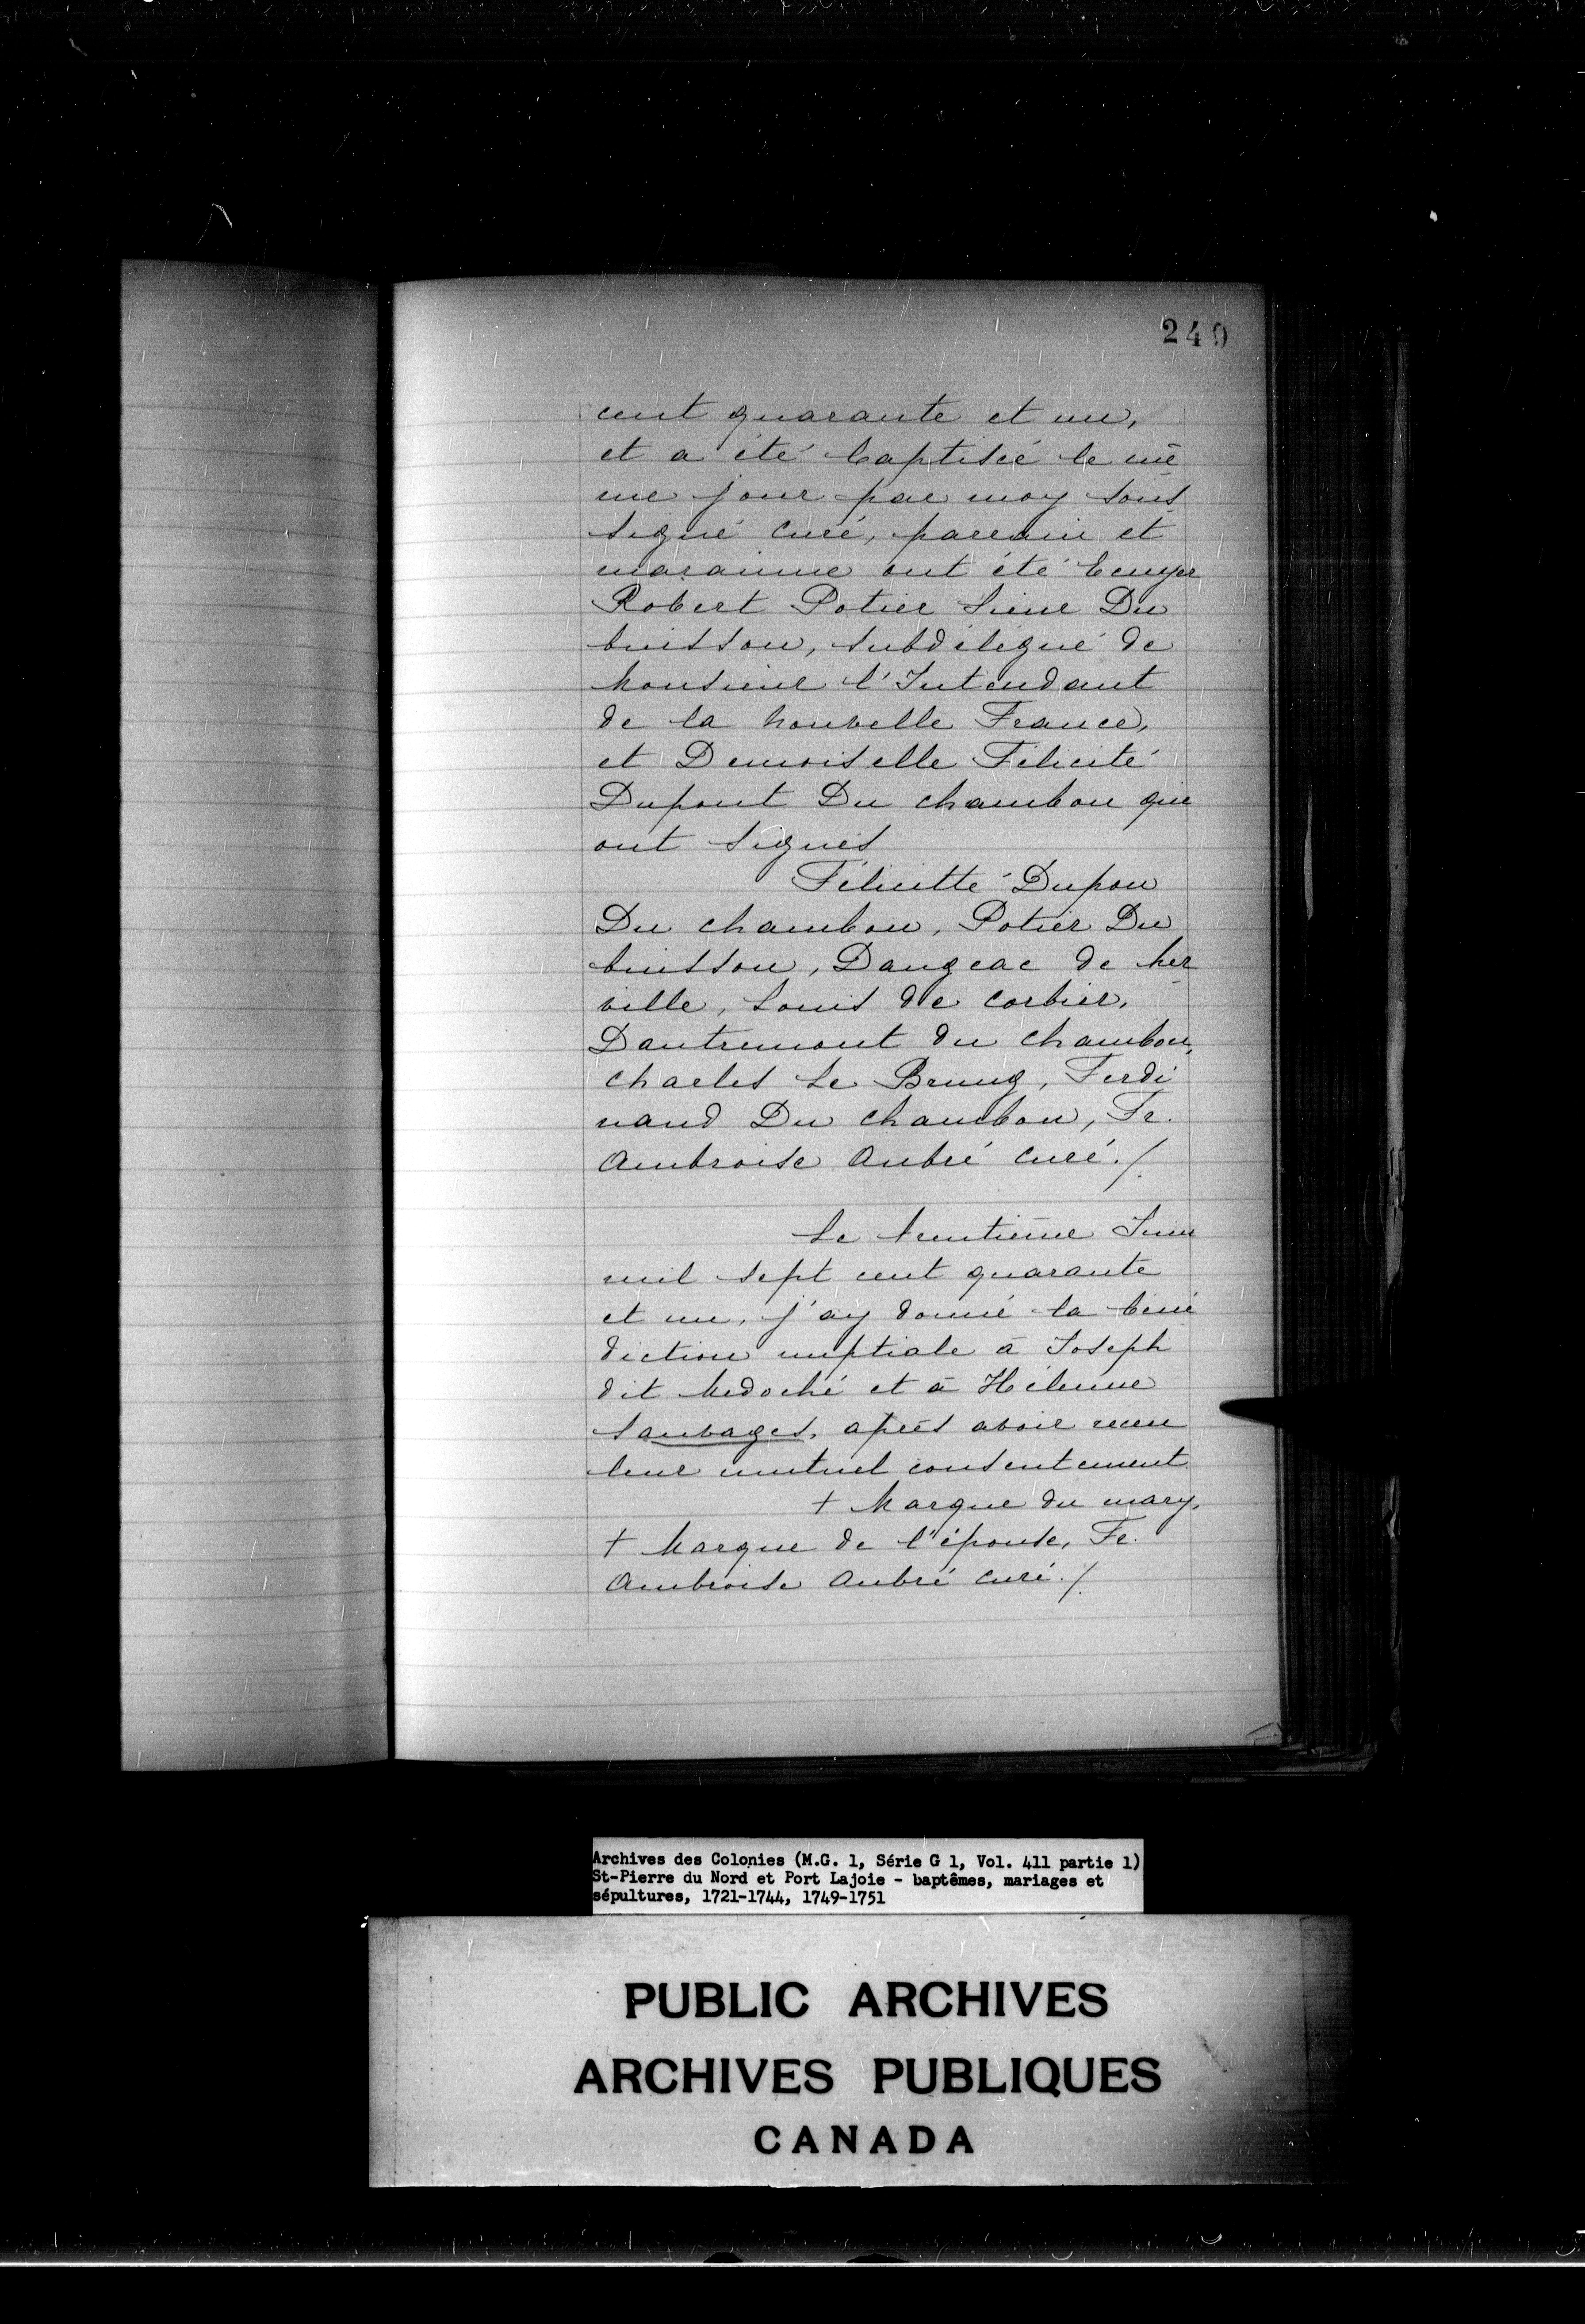 249
cent quarante et un,
et a été baptisée le mê
me jour par moy sous
signé curé, parrain et
maraînne ont été Ecuyer
Robert Potier Sieur Du
buisson, subdélégué de
Monsieur l'Intendant
de la Nouvelle France,
et Demoiselle Félicité
Dupont Du chambon qui
ont signés
Félicitté Dupon
Du chambon, Potier Du
buisson, Dangeac de Mer
ville, Louis de corbier,
Dantremont du chambon,
charles Le Brung, Ferdi
nand Du chambon, Fr.
Ambroise Aubré curé./.
Le Juin
mil sept cent quarante
et un, j'ay donné la béné
diction nuptiale à Joseph
dit Medoché et à Hélenne
Sauvages, après avoir receu
leur mutuel consentement
+ Marque du mary,
+ Marque de l'épouse, Fr.
Ambroise Aubré curé./.
Archives des Colonies (M.G. 1, Série G 1, Vol. 411 partie 1)
St-Pierre du Nord et Port Lajoie - baptêmes, mariages et
sépultures, 1721-1744, 1749-1751
PUBLIC ARCHIVES
ARCHIVES PUBLIQUES
CANADA